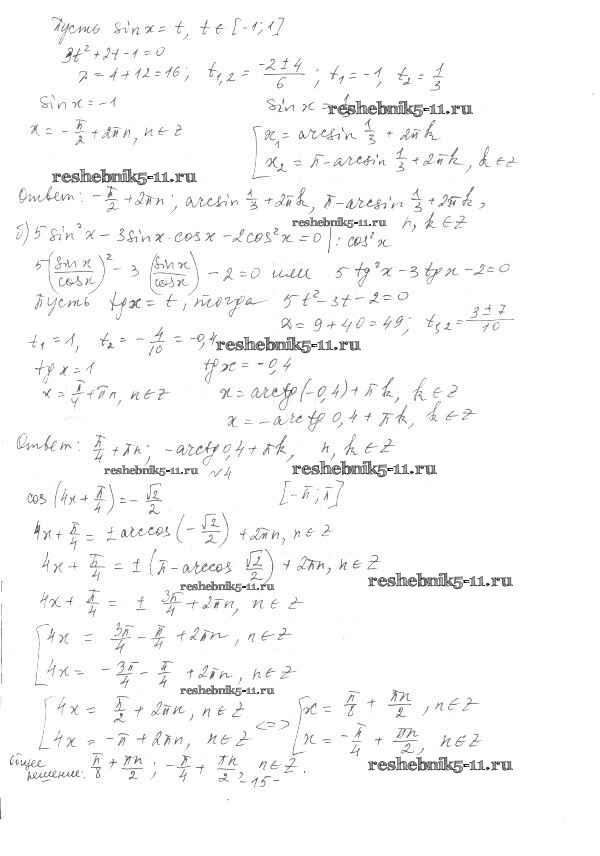 Пусть sinx = t, t ∈ [-1; 1]
3t² + 2t - 1 = 0
D = 4 + 12 = 16; t₁,₂ = (-2 ± 4)/6; t₁ = -1, t₂ = 1/3
sinx = -1 sinx = 1/3
reshebnik5-11.ru
x = -π/2 + 2πn, n ∈ Z [ x₁ = arcsin 1/3 + 2πk
x₂ = π - arcsin 1/3 + 2πk, k ∈ Z
reshebnik5-11.ru
Ответ: -π/2 + 2πn; arcsin 1/3 + 2πk, π - arcsin 1/3 + 2πk,
reshebnik5-11.ru n, k ∈ Z
б) 5 sin²x - 3 sinx · cosx - 2cos²x = 0 | : cos²x
5(sinx/cosx)² - 3(sinx/cosx) - 2 = 0 или 5 tg²x - 3 tgx - 2 = 0
Пусть tgx = t, тогда 5t² - 3t - 2 = 0
D = 9 + 40 = 49; t₁,₂ = (3 ± 7)/10
t₁ = 1, t₂ = -4/10 = -0,4
reshebnik5-11.ru
tgx = 1 tgx = -0,4
x = π/4 + πn, n ∈ Z x = arctg(-0,4) + πk, k ∈ Z
x = -arctg 0,4 + πk, k ∈ Z
Ответ: π/4 + πn; -arctg 0,4 + πk, n, k ∈ Z
reshebnik5-11.ru №4 reshebnik5-11.ru
cos(4x + π/4) = -√2/2 [-π; π]
4x + π/4 = ± arccos(-√2/2) + 2πn, n ∈ Z
4x + π/4 = ± (π - arccos √2/2) + 2πn, n ∈ Z
reshebnik5-11.ru reshebnik5-11.ru
4x + π/4 = ± 3π/4 + 2πn, n ∈ Z
[ 4x = 3π/4 - π/4 + 2πn, n ∈ Z
4x = -3π/4 - π/4 + 2πn, n ∈ Z
reshebnik5-11.ru
[ 4x = π/2 + 2πn, n ∈ Z <=> [ x = π/8 + πn/2, n ∈ Z
4x = -π + 2πn, n ∈ Z x = -π/4 + πn/2, n ∈ Z
Общее решение: π/8 + πn/2; -π/4 + πn/2, n ∈ Z.
reshebnik5-11.ru
-15-